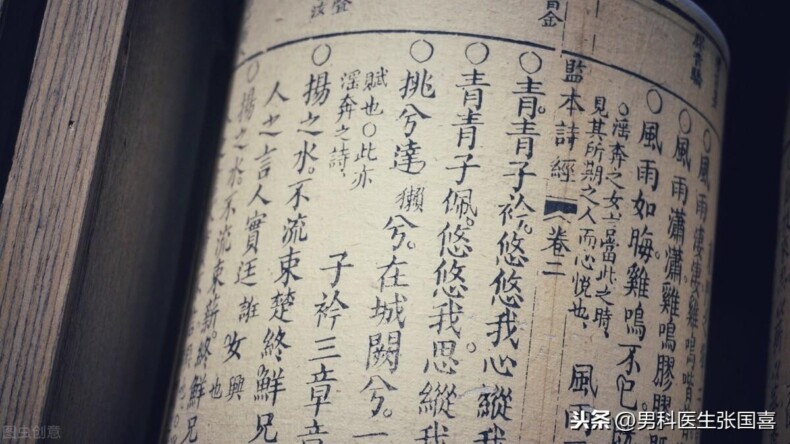 ○風雨
○風雨瀟瀟雞鳴膠膠
○風雨如晦雞鳴不已
○淫奔之女言當此之時
見其所期之人而心悅也 風
監本詩經 卷二
○青青子衿。悠悠我心縱我
○青青子佩。悠悠我思。縱我
○挑兮達獺兮。在城闕兮。一
賦也○此亦
淫奔之詩 子衿三章章
○揚之水。不流束楚終鮮兄
人之言人實廷誑女 興也
○揚之水。不流束薪。終鮮兄
图虫创意
头条 @男科医生张国喜